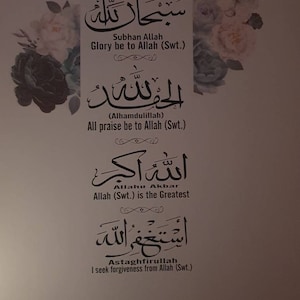 سبحان الله
Subhan Allah
Glory be to Allah (Swt.)
الحمد لله
(Alhamdulillah)
All praise be to Allah (Swt.)
الله اكبر
Allahu Akbar
Allah (Swt.) is the Greatest
استغفر الله
Astaghfirullah
I seek forgiveness from Allah (Swt.)